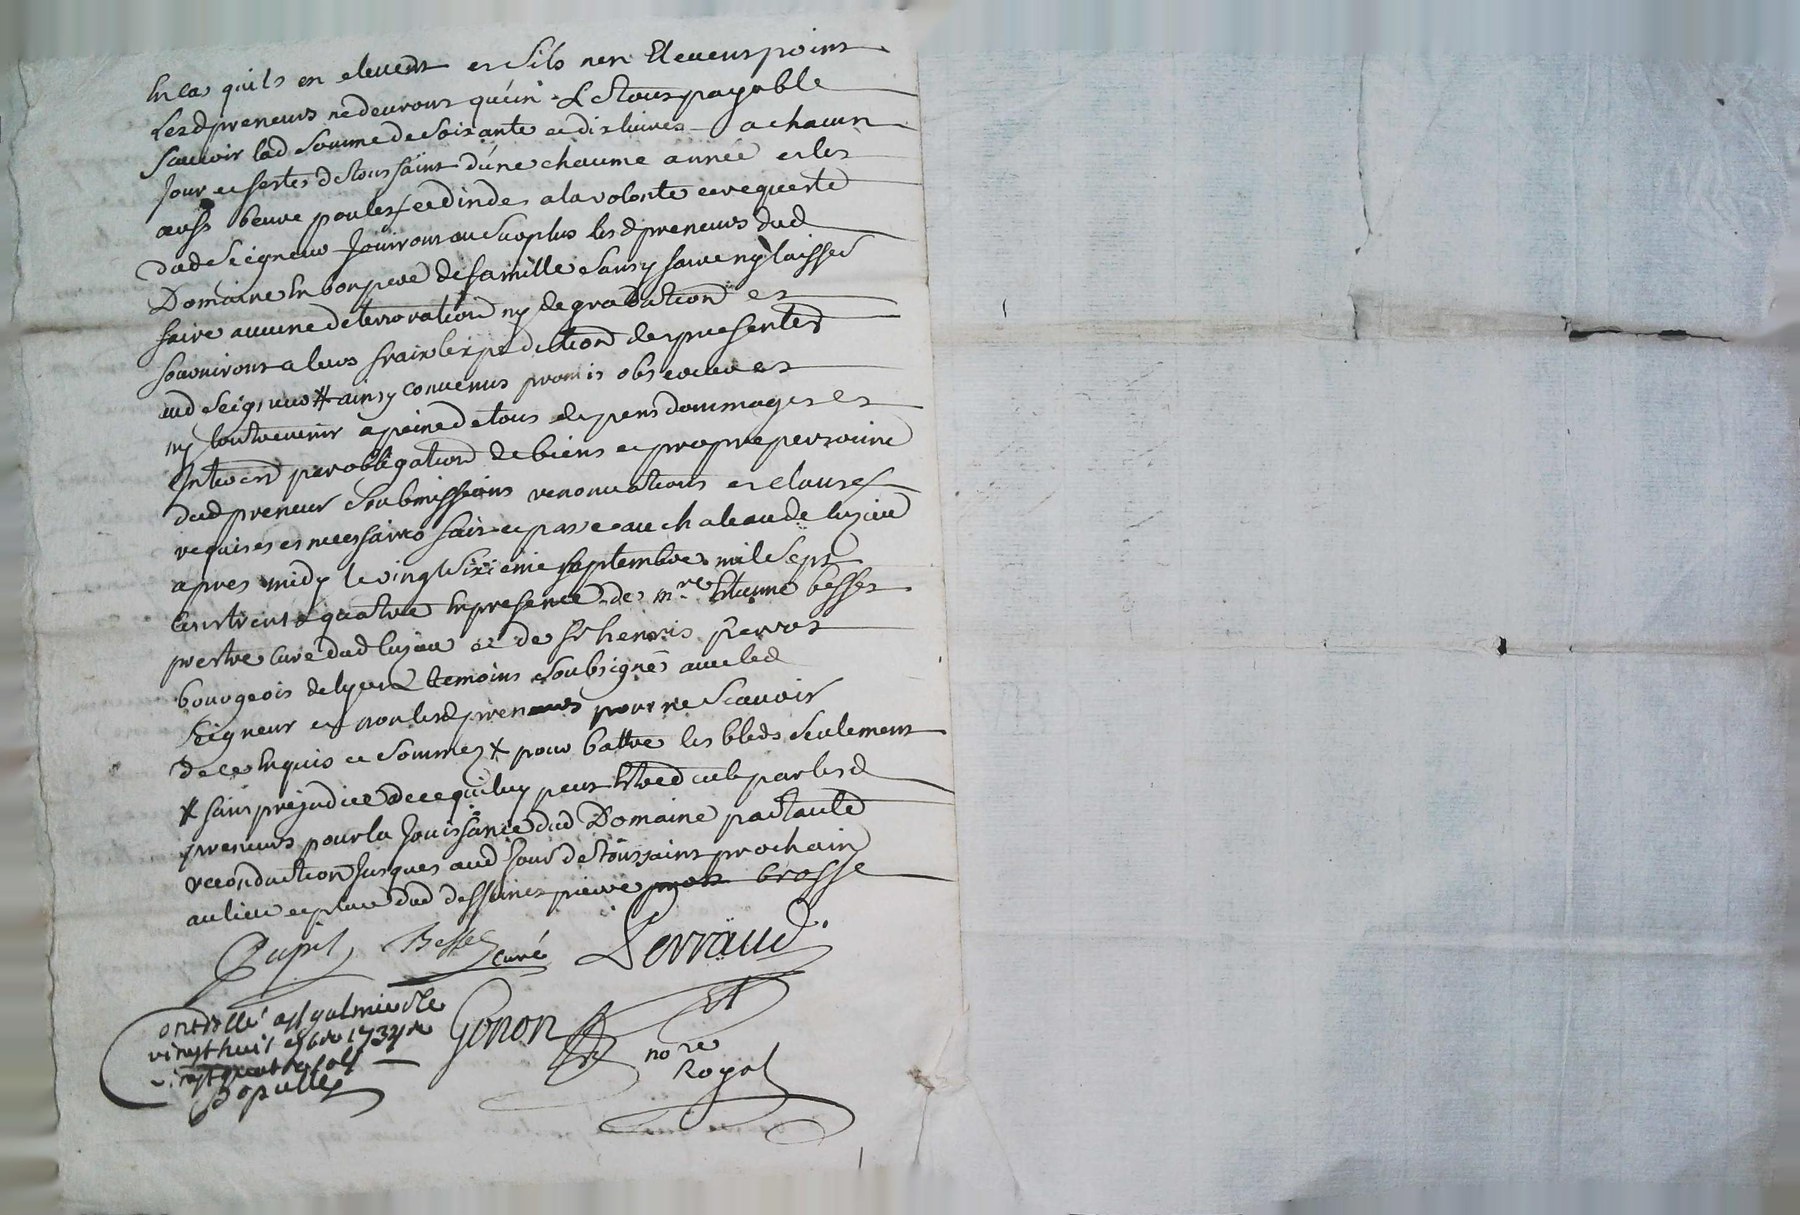 En cas quils en elevent et sils nen Elevent point
Lesd preneurs ne devront quun. Le tout payable
scavoir lad somme de soixante et dix livres a chacun
jour et festes de toussaint dune chacune année et les
aussi beure poules et dindes a la volonté et requeste
dud Seigneur Jouiront au surplus lesd preneurs dud
Domaine En bon pere de famille sans y faire ny laisser
faire aucune deterioration ny degradation et
fourniront a leurs frais lexpedition des presentes
aud Seigneur # ainsy convenus promis observer et
ny contrevenir a peine de tous depens dommages et
Interest par obligation de biens et propre personne
dud preneur soubmissions renonciations et clauses
requises et necessaires fait et passé au chateau de luzieu
apres midy le vingt sixieme septembre mil sept
cens trente quatre En presence de mre Etienne besset
prestre curé dud luzieu et de sr henris perrot
bourgeois de lyon temoins soubsignés avec led
Seigneur et non lesd preneurs pour ne scavoir
de ce Enquis et sommez * pour battre les bleds seulement
# sans prejudice de ce qui luy peut Etre dcub par lesd
preneurs pour la Jouissance dud Domaine par taute
reconduction Jusques aud jour de toussaint prochain
au lieu et place dud deffunct pierre brosse
Pupil Besset curé Perraud
Gonon
Controllé a st galmier le
vingt huit 7bre 1734 R
no re
Royal